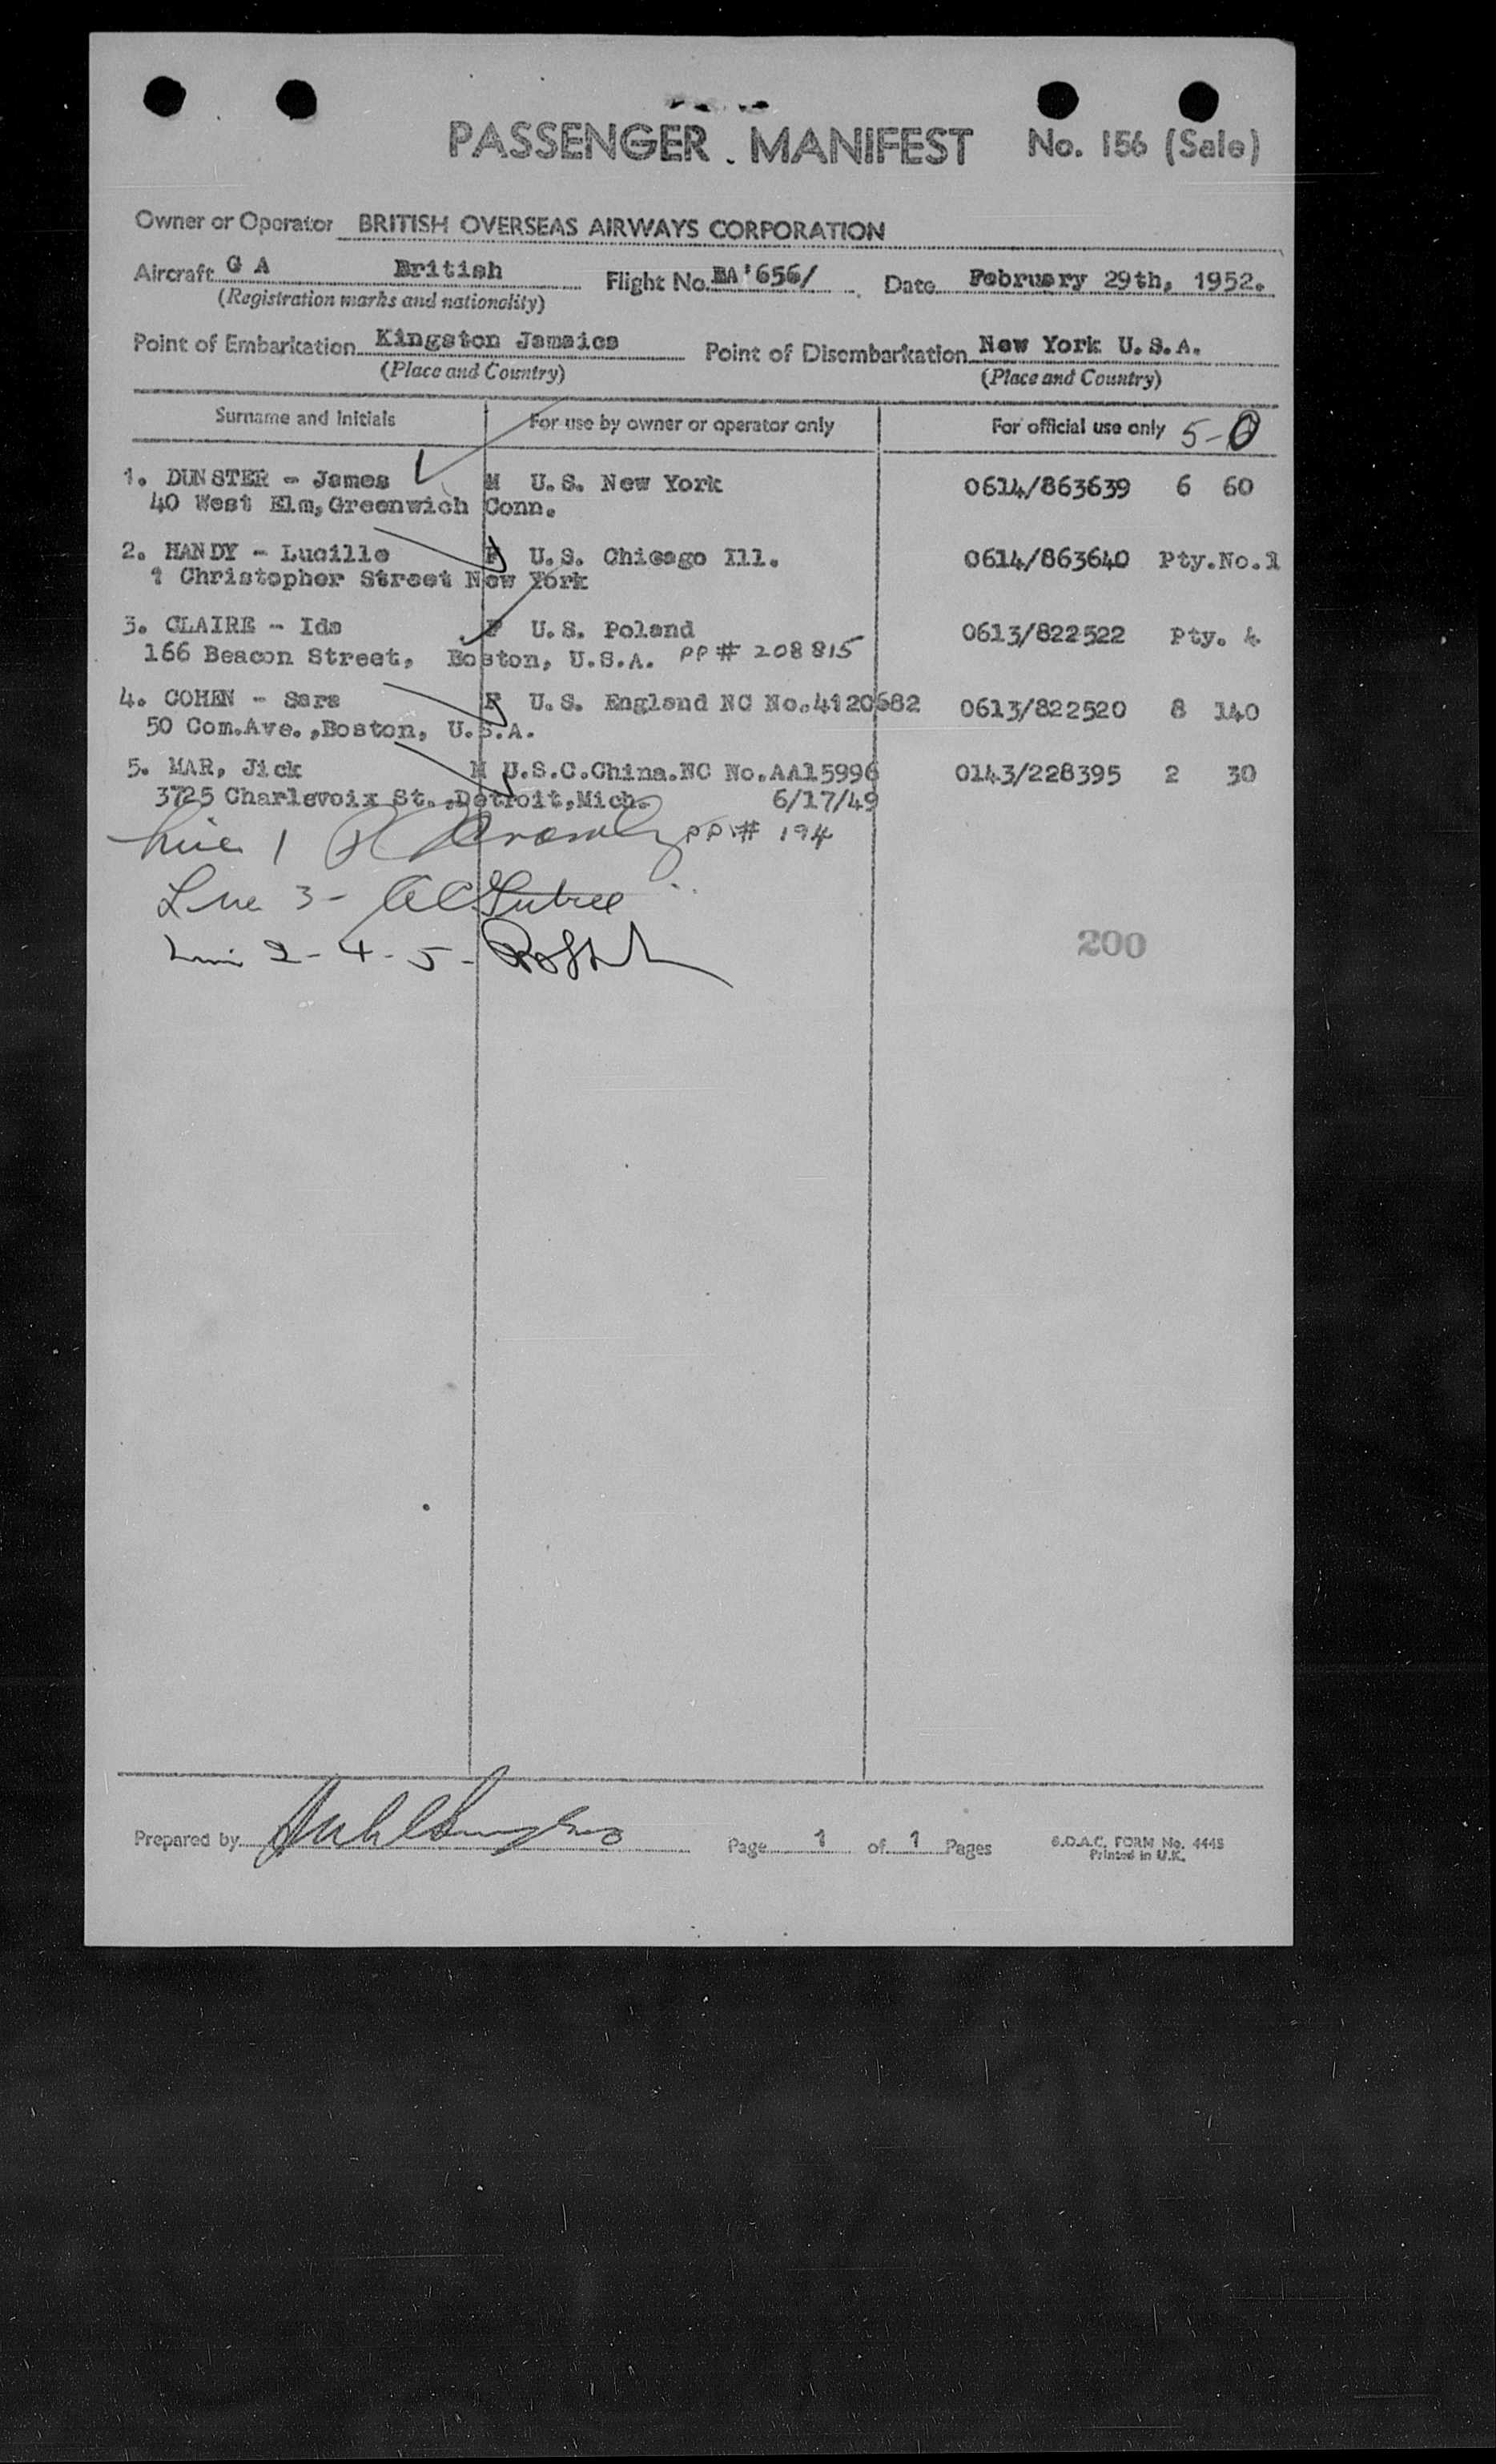 PASSENGER MANIFEST No. 156 (Sale)
Owner or Operator BRITISH OVERSEAS AIRWAYS CORPORATION
Aircraft G A British Flight No. BA'656/ Date February 29th, 1952.
(Registration marks and nationality)
Point of Embarkation Kingston Jamaica Point of Disembarkation New York U.S.A.
(Place and Country) (Place and Country)
Surname and Initials For use by owner or operator only For official use only 5-0
1. DUNSTER - James M U.S. New York 0614/863639 6 60
40 West Elm, Greenwich Conn.
2. HANDY - Lucille F U.S. Chicago Ill. 0614/863640 Pty.No.1
1 Christopher Street New York
3. CLAIRE - Ida F U.S. Poland 0613/822522 Pty. 4
166 Beacon Street, Boston, U.S.A. PP# 208815
4. COHEN - Sara F U.S. England NC No.4120682 0613/822520 8 140
50 Com.Ave.,Boston, U.S.A.
5. MAR, Jick M U.S.C.China.NC No.AA15996 0143/228395 2 30
3725 Charlevoix St.,Detroit,Mich. 6/17/49
Line 1 PP.# 194
Line 3 -
Line 2 - 4 - 5 -
200
Prepared by Page 1 of 1 Pages B.O.A.C. FORM No. 4445
Printed in U.K.